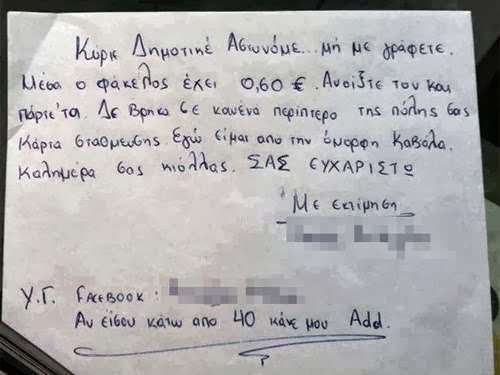 Κύριε Δημοτικέ Αστυνόμε... μή με γράφετε.
Μέσα ο φάκελος έχει 0,60 €. Ανοίξτε τον και
πάρτε'τα. Δε βρήκα σε κανένα περίπτερο της πόλης σας
Κάρτα στάθμευσης Εγώ είμαι από την όμορφη Καβάλα.
Καλημέρα σας κιόλλας. ΣΑΣ ΕΥΧΑΡΙΣΤΩ
Με εκτίμηση
Υ.Γ. FACEBOOK:
Αν είσου κάτω από 40 κάνε μου Add.